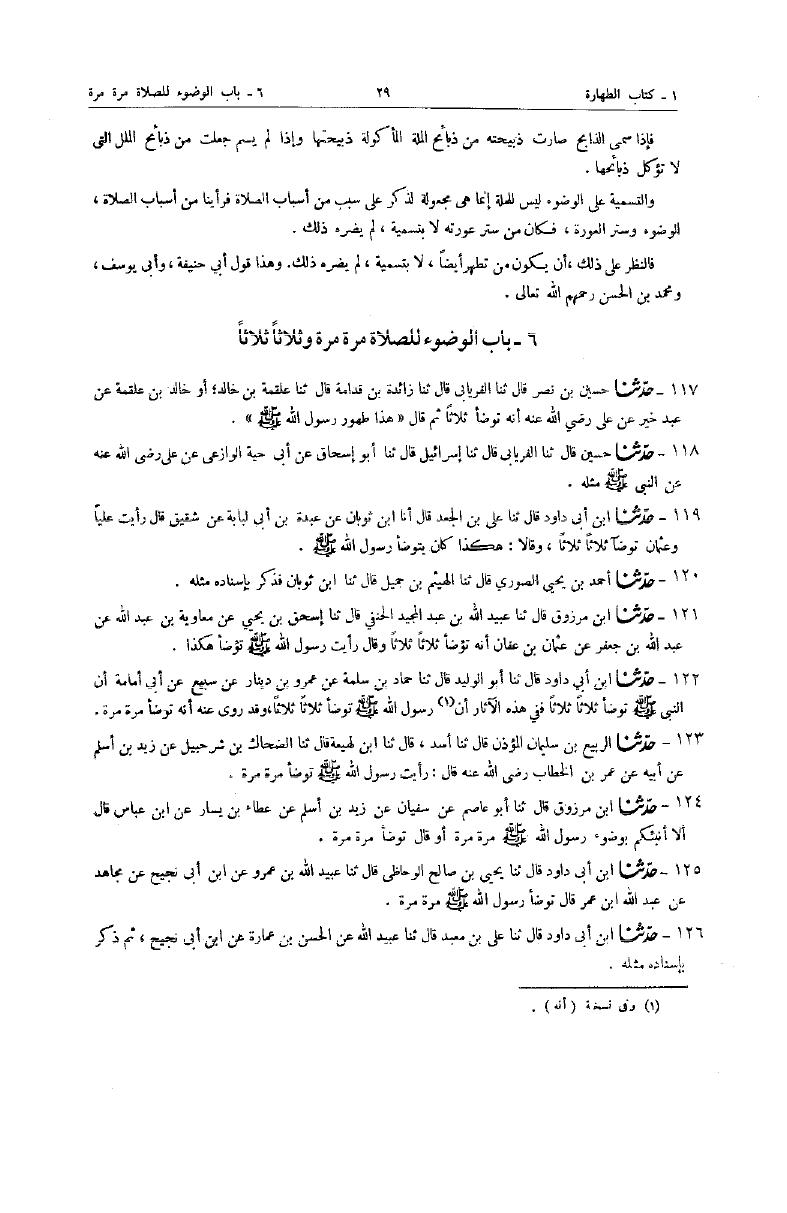 ١ ـ كتاب الطهارة ٢٩ ٦ ـ باب الوضوء للصلاة مرة مرة
فإذا سمى الذابح صارت ذبيحته من ذبائح الملة المأكولة ذبيحتها وإذا لم يسم جعلت من ذبائح الملل التى
لا تؤكل ذبائحها .
والتسمية على الوضوء ليس للملة إنما هى مجعولة لذكر على سبب من أسباب الصلاة فرأينا من أسباب الصلاة ،
الوضوء وستر العورة ، فكان من ستر عورته لا بتسمية ، لم يضره ذلك .
فالنظر على ذلك ،أن يكون من تطهر أيضاً ، لا بتسمية ، لم يضره ذلك. وهذا قول أبي حنيفة ، وأبى يوسف ،
ومحمد بن الحسن رحمهم الله تعالى .
٦ ـ باب الوضوء للصلاة مرة مرة وثلاثاً ثلاثاً
١١٧ ـ حدّثنا حسين بن نصر قال ثنا الفريابى قال ثنا زائدة بن قدامة قال ثنا علقمة بن خالد؛ أو خالد بن علقمة عن
عبد خير عن على رضي الله عنه أنه توضأ ثلاثاً ثم قال « هذا طهور رسول الله ﷺ » .
١١٨ ـ حدّثنا حسين قال ثنا الفريابى قال ثنا إسرائيل قال ثنا أبو إسحاق عن أبى حية الوازعى عن على رضى الله عنه
عن النبى ﷺ مثله .
١١٩ ـ حدّثنا ابن أبى داود قال ثنا على بن الجعد قال أنا ابن ثوبان عن عبدة بن أبى لبابة عن شقيق قال رأيت علياً
وعثمان توضآ ثلاثاً ثلاثاً ، وقالا : هكذا كان يتوضأ رسول الله ﷺ .
١٢٠ ـ حدّثنا أحمد بن يحيى الصوري قال ثنا الهيثم بن جميل قال ثنا ابن ثوبان فذكر بإسناده مثله .
١٢١ ـ حدّثنا ابن مرزوق قال ثنا عبيد الله بن عبد المجيد الحنفي قال ثنا إسحق بن يحيى عن معاوية بن عبد الله عن
عبد الله بن جعفر عن عثمان بن عفان أنه توضأ ثلاثاً ثلاثاً وقال رأيت رسول الله ﷺ توضأ هكذا .
١٢٢ ـ حدّثنا ابن أبي داود قال ثنا أبو الوليد قال ثنا حماد بن سلمة عن عمرو بن دينار عن سبيع عن أبى أمامة أن
النبى ﷺ توضأ ثلاثاً ثلاثاً فني هذه الآثار أن(١) رسول الله ﷺ توضأ ثلاثاً ثلاثاً،وقد روى عنه أنه توضأ مرة مرة .
١٢٣ ـ حدّثنا الربيع بن سليمان المؤذن قال ثنا أسد ، قال ثنا ابن لهيعةقال ثنا الضحاك بن شرحبيل عن زيد بن أسلم
عن أبيه عن عمر بن الخطاب رضى الله عنه قال : رأيت رسول الله ﷺ توضأ مرة مرة .
١٢٤ ـ حدّثنا ابن مرزوق قال ثنا أبو عاصم عن سفيان عن زيد بن أسلم عن عطاء بن يسار عن ابن عباس قال
ألا أنبئكم بوضوء رسول الله ﷺ مرة مرة أو قال توضأ مرة مرة .
١٢٥ ـ حدّثنا ابن أبى داود قال ثنا يحيى بن صالح الوحاظى قال ثنا عبيد الله بن عمرو عن ابن أبى نجيح عن مجاهد
عن عبد الله ابن عمر قال توضأ رسول الله ﷺ مرة مرة .
١٢٦ ـ حدّثنا ابن أبى داود قال ثنا على بن معبد قال ثنا عبيد الله عن الحسن بن عمارة عن ابن أبى نجيح ، ثم ذكر
بإسناده مثله .
(١) وفى نسخة ( أنه ) .